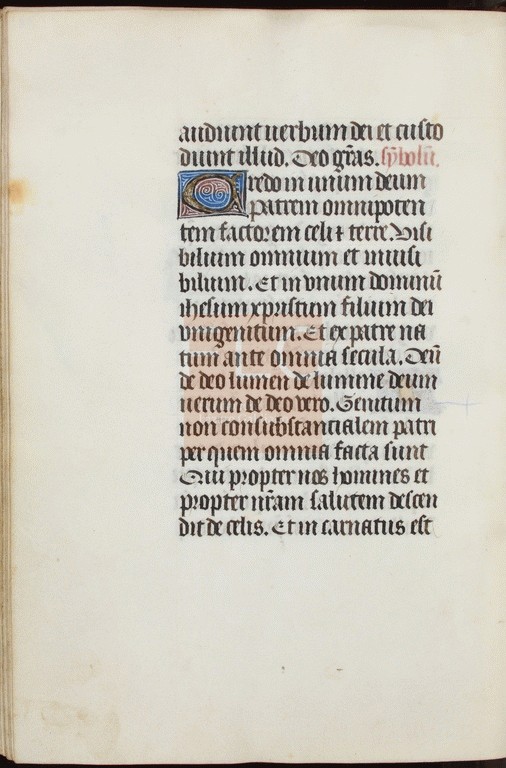 audiunt uerbum dei et custo
diunt illud. Deo gr̃as. sy̅bolu̅.
Credo in unum deum
patrem omnipoten
tem factorem celi ⁊ terre. Visi
bilium omnium et inuisi
bilium. Et in vnum dominu̅
ihesum xpristum filium dei
vnigenitum. Et ex patre na
tum ante omnia secula. Deu̅
de deo lumen de lumine deum
uerum de deo vero. Genitum
non consubstancialem patri
per quem omnia facta sunt
Qui propter nos homines et
propter nr̃am salutem descen
dit de celis. Et in carnatus est